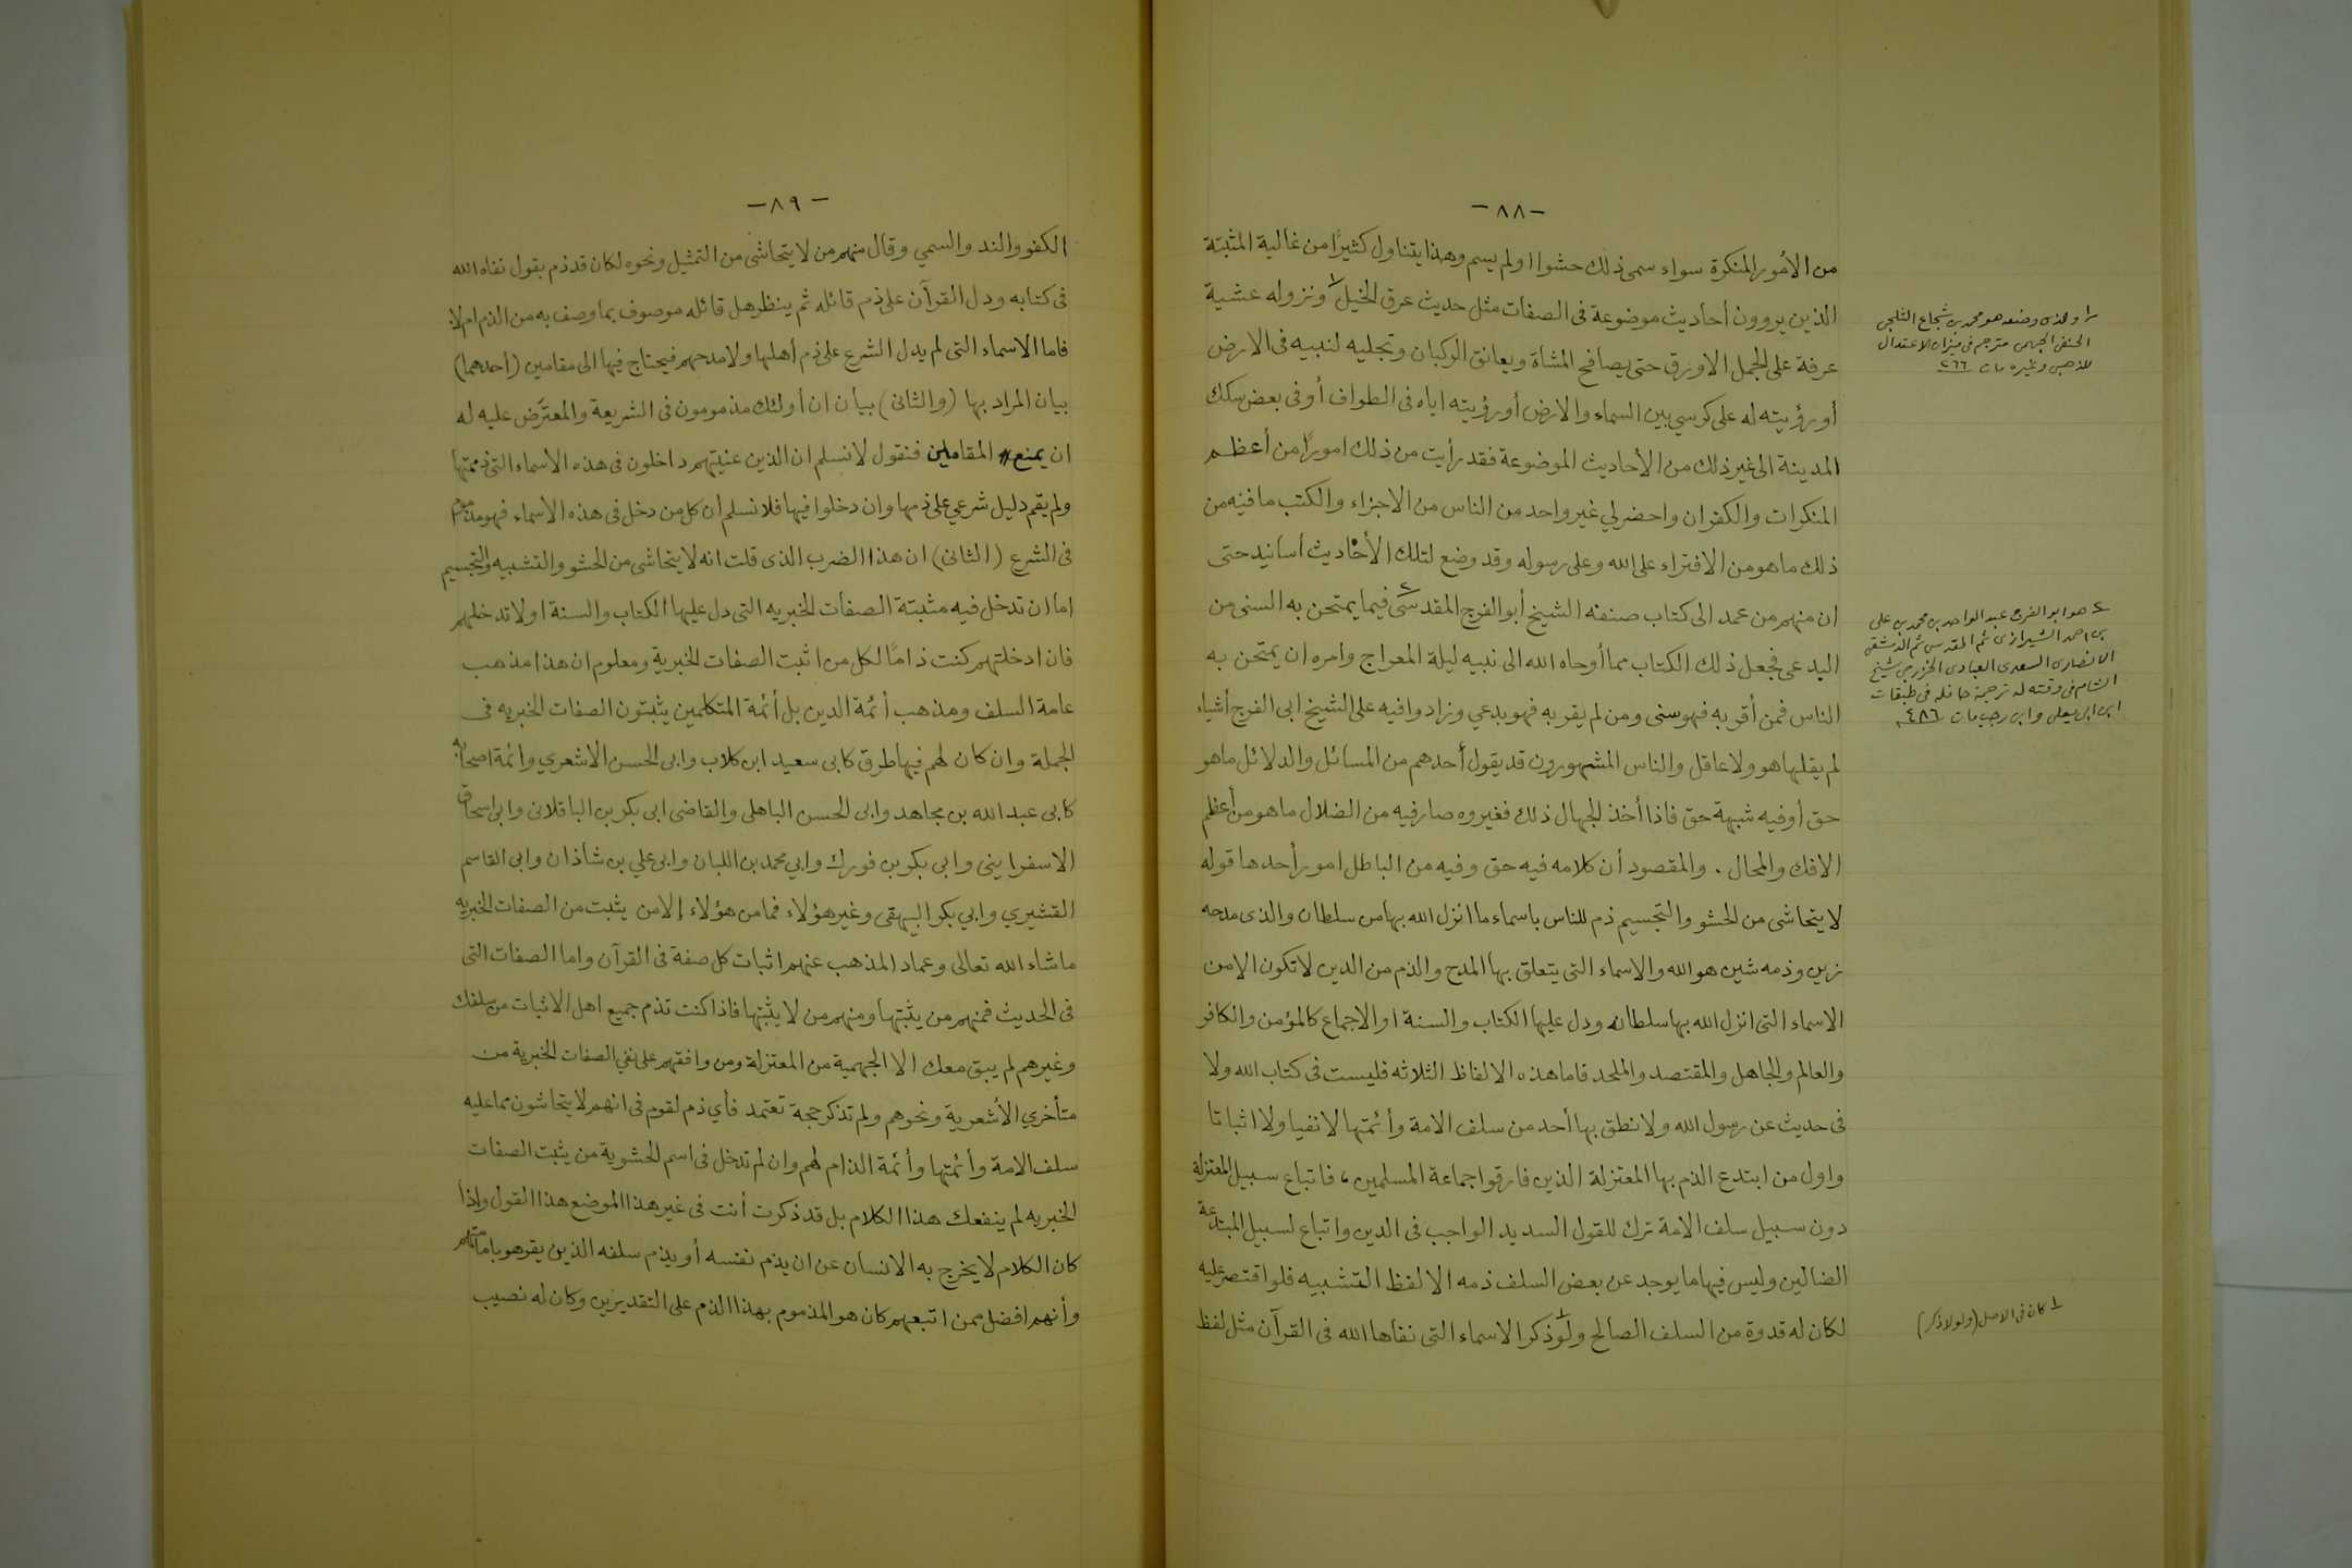 -٨٨-
من الأمور المنكرة سواء سمى ذلك حشوا او لم يسم وهذا يتناول كثيرًا من غالية المثبتة
الذين يروون أحاديث موضوعة فى الصفات مثل حديث عرق الخيل ١ ونزوله عشية
عرفة على الجمل الاورق حتى يصافح المشاة ويعانق الركبان وتجليه لنبيه فى الارض
أو رؤيته له على كرسي بين السماء والارض أو رؤيته اياه فى الطواف أو فى بعض سكك
المدينة الى غير ذلك من الأحاديث الموضوعة فقد رأيت من ذلك امورًا من أعظم
المنكرات والكفران واحضر لي غير واحد من الناس من الاجزاء والكتب ما فيه من
ذلك ما هو من الافتراء على الله وعلى رسوله وقد وضع لتلك الأحاديث أسانيد حتى
ان منهم من عمد الى كتاب صنفه الشيخ أبو الفرج المقدسى ٢ فيما يمتحن به السنى من
البدعى فجعل ذلك الكتاب مما أوحاه الله الى نبيه ليلة المعراج وامره ان يمتحن به
الناس فمن أقر به فهو سنى ومن لم يقر به فهو بدعي وزادوا فيه على الشيخ ابى الفرج أشياء
لم يقلها هو ولا عاقل والناس المشهورون قد يقول أحدهم من المسائل والدلائل ما هو
حق أو فيه شبهة حق فاذا أخذ الجهال ذلك فغيروه صار فيه من الضلال ما هو من أعظم
الافك والمحال . والمقصود أن كلامه فيه حق وفيه من الباطل امور أحدها قوله
لا يتحاشى من الحشو والتجسيم ذم للناس باسماء ما انزل الله بها من سلطان والذى مدحه
زين وذمه شين هو الله والاسماء التى يتعلق بها المدح والذم من الدين لا تكون الا من
الاسماء التى انزل الله بها سلطانه ودل عليها الكتاب والسنة او الاجماع كالمؤمن والكافر
والعالم والجاهل والمقتصد والملحد فاما هذه الالفاظ الثلاثه فليست فى كتاب الله ولا
فى حديث عن رسول الله ولا نطق بها أحد من سلف الامة وأئمتها لا نفيا ولا اثباتا
واول من ابتدع الذم بها المعتزلة الذين فارقوا جماعة المسلمين، فاتباع سبيل المعتزلة
دون سبيل سلف الامة ترك للقول السديد الواجب فى الدين واتباع لسبيل المبتدعة
الضالين وليس فيها ما يوجد عن بعض السلف ذمه الا لفظ التشبيه فلو اقتصر عليه
لكان له قدوة من السلف الصالح ولو ١ ذكر الاسماء التى نفاها الله فى القرآن مثل لفظ
١ والذى وضعه هو محمد بن شجاع الثلجى
الحنفى الجهمى مترجم فى ميزان الاعتدال
للذهبى وغيره مات ٢٦٦
٢ هو ابو الفرج عبد الواحد بن محمد بن على
بن احمد الشيرازى ثم المقدسى ثم الدمشقى
الانصارى السعدى العبادى الخزرجى شيخ
الشام فى وقته له ترجمة حافلة فى طبقات
ابن ابى يعلى وابن رجب مات ٤٨٦
١ كان فى الاصل (ولولا ذكر)
-٨٩-
الكفو والند والسمي وقال منهم من لا يتحاشى من التمثيل ونحوه لكان قد ذم بقول نفاه الله
فى كتابه ودل القرآن على ذم قائله ثم ينظر هل قائله موصوف بما وصف به من الذم ام لا
فاما الاسماء التى لم يدل الشرع على ذم أهلها ولا مدحهم فيحتاج فيها الى مقامين (أحدهما)
بيان المراد بها (والثانى) بيان ان أولئك مذمومون فى الشريعة والمعترض عليه له
ان يمنع المقامين فنقول لا نسلم ان الذين عنيتهم داخلون فى هذه الأسماء التى ذممتها
ولم يقم دليل شرعي على ذمها وان دخلوا فيها فلا نسلم أن كل من دخل فى هذه الاسماء فهو مذموم
فى الشرع (الثانى) ان هذا الضرب الذى قلت انه لا يتحاشى من الحشو والتشبيه والتجسيم
اما ان تدخل فيه مثبتة الصفات الخبريه التى دل عليها الكتاب والسنة او لا تدخلهم
فان ادخلتهم كنت ذامًا لكل من اثبت الصفات الخبرية ومعلوم ان هذا مذهب
عامة السلف ومذهب أئمة الدين بل أئمة المتكلمين يثبتون الصفات الخبريه فى
الجملة وان كان لهم فيها طرق كابى سعيد ابن كلاب وابى الحسن الاشعري وائمة اصحابه
كابى عبد الله بن مجاهد وابى الحسن الباهلى والقاضى ابى بكر بن الباقلانى وابى اسحاق
الاسفراينى وابى بكر بن فورك وابي محمد بن اللبان وابى علي بن شاذان وابى القاسم
القشيري وابي بكر البيهقى وغير هؤلاء فما من هؤلاء إلا من يثبت من الصفات الخبريه
ما شاء الله تعالى وعماد المذهب عنهم اثبات كل صفة فى القرآن واما الصفات التى
فى الحديث فمنهم من يثبتها ومنهم من لا يثبتها فاذا كنت تذم جميع اهل الاثبات من سلفك
وغيرهم لم يبق معك الا الجهمية من المعتزلة ومن وافقهم على نفي الصفات الخبرية من
متأخري الأشعرية ونحوهم ولم تذكر حجة تعتمد فأي ذم لقوم فى انهم لا يتحاشون مما عليه
سلف الامة وأئمتها وأئمة الذام لهم وان لم تدخل فى اسم الحشوية من يثبت الصفات
الخبريه لم ينفعك هذا الكلام بل قد ذكرت أنت فى غير هذا الموضع هذا القول واذا
كان الكلام لا يخرج به الانسان عن ان يذم نفسه أو يذم سلفه الذين يقر هو بامامتهم
وأنهم افضل ممن اتبعهم كان هو المذموم بهذا الذم على التقديرين وكان له نصيب